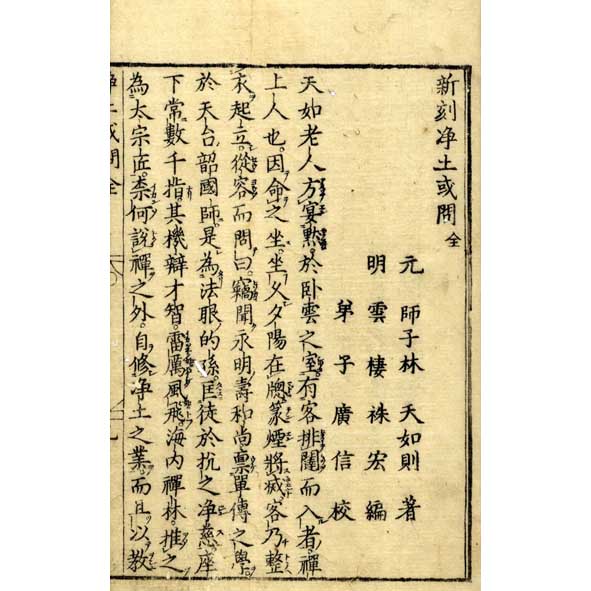 新刻净土或問 全
元 師子林 天如則 著
明 雲棲 袾宏 編
弟子 廣信 校
天如老人方宴黙於卧雲之室有客排闥而入者禪
上人也因命之坐坐久夕陽在牕篆煙將滅客乃整
衣起立從容而問曰竊聞永明壽和尚稟單傳之學
於天台韶國師是為法眼的孫匡徒於抗之净慈座
下常數千指其機辯才智雷厲風飛海内禪林推之
為太宗匠柰何說禪之外自修净土之業而且以教
净土或問全